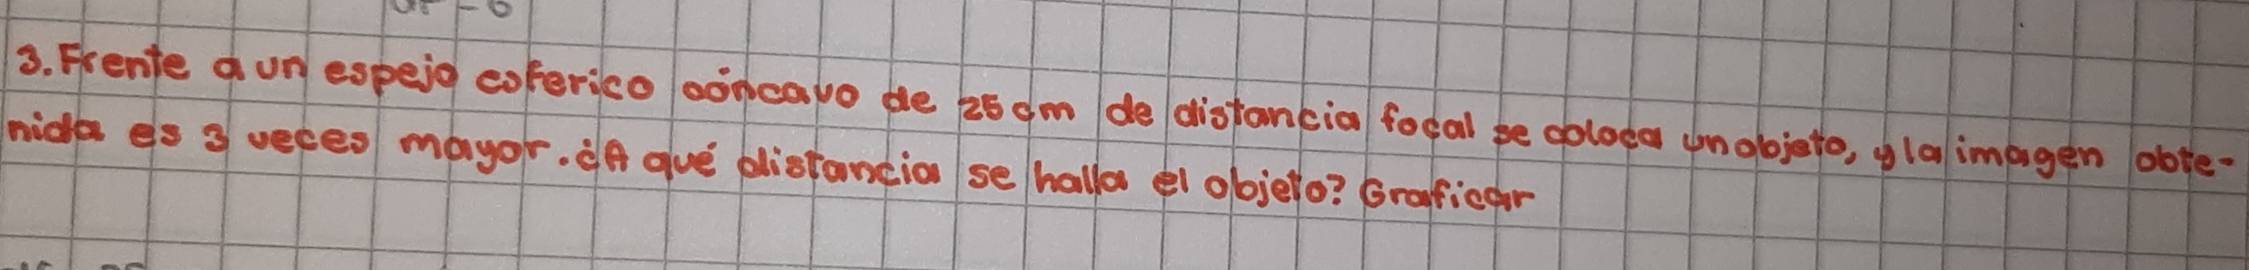 3. Frente a un espejo esferico cóncavo de 25 cm de distancia focal se coloca un objeto, y la imagen obte-
nida es 3 veces mayor. ¿A qué distancia se halla el objeto? Graficar